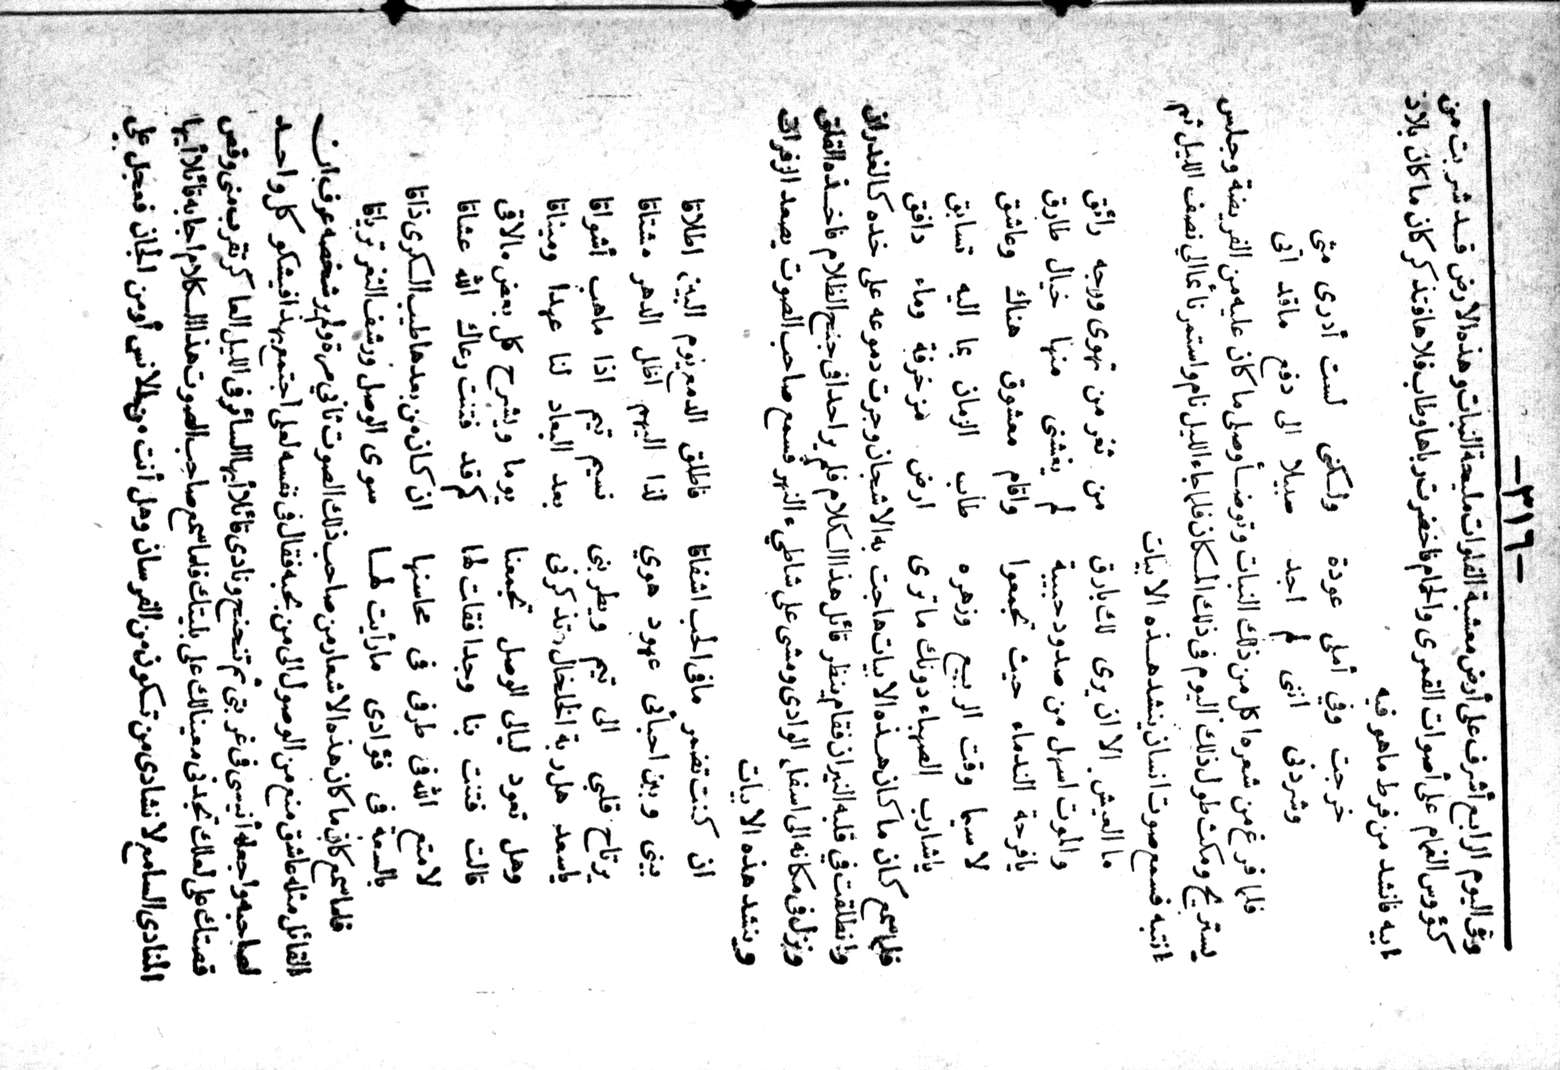 -٣١٦-
وفى اليوم الرابع أشرف على أرض معشبة الفلوات مليحة النبات وهذه الارض قد شربت من
كؤوس الغمام على أصوات القمرى والحمام فاخضرت رباها وطاب فلاها فتذكر كان ما كان بلاد
ابيه فانشد من فرط ما هو فيه
خرجت وفي أملى عودة ولكنى لست أدرى متى
وشردنى اننى لم اجد سبيلا الى دفع ماقد اتى
فلما فرغ من شعره اكل من ذلك النبات وتوضأ وصلى ما كان عليه من الفريضة وجلس
يستريح ومكث طول ذلك اليوم فى ذلك المكان فلما جاء الليل نام واستمر نائما الى نصف الليل ثم
انتبه فسمع صوت انسان ينشد هذه الابيات
ما العيش الا ان يرى لك بارق من ثغر من تهوى ووجه رائق
والموت اسهل من صدود حبيبة لم يغشنى منها خيال طارق
يافرحة الندماء حيث تجمعوا واقام معشوق هناك وعاشق
لاسيما وقت الربيع وزهره طاب الزمان بما اليه تسابق
ياشارب الصهباء دونك ما ترى ارض مزخرفة وماء دافق
فلما سمع كان ما كان هذه الابيات هاجت به الاشجان وجرت دموعه على خده كالغدران
وانطلقت في قلبه النيران فقام ينظر قائل هذا الكلام فلم ير احدا فى جنح الظلام فاخذه القلق
ونزل فى مكانه الى اسفل الوادى ومشى على شاطىء النهر فسمع صاحب الصوت يصعد الزفرات
وينشد هذه الابيات
ان كنت تضمر مافى الحب اشفاقا فاطلق الدمع يوم البين اطلاقا
بينى وبين احبائى عهود هوي لذا اليهم اظل الدهر مشتاقا
يرتاح قلبى الى تيم ويطربنى نسيم تيم اذا ماهب أشواقا
ياسعد هل ربة الخلخال تذكرنى بعد البعاد لنا عهدا وميثاقا
وهل تعود ليالى الوصل تجمعنا يوما ويشرح كل بعض مالاقى
قالت فتنت بنا وجدا فقلت لها كم قد فتنت رعاك الله عشاقا
لامتع الله فى طرفى فى محاسنها ان كان من بعدها طيب الكرى ذاقا
يالسعة فى فؤادى مارأيت لها سوى الوصل ورشف الثغر ترياقا
فلما سمع كان ما كان هذه الاشعار من صاحب ذلك الصوت ثاني مرة ولم ير شخصه عرف ان
القائل مثله عاشق منع من الوصول الى من يحبه فقال فى نفسه لعلى اجتمع بهذا فيشكو كل واحد
لصاحبه واجعله أنيسى فى غربتى ثم تنحنح ونادى قائلا أيها السائر فى الليل العاكر تقرب منى وقص
قصتك على لعلك تجدنى معينا لك على بليتك فلما سمع صاحب الصوت هذا الكلام اجابه قائلا أيها
المنادى السامع لانشادى من تكون من الفرسان وهل أنت من الانس أو من الجان فعجل على